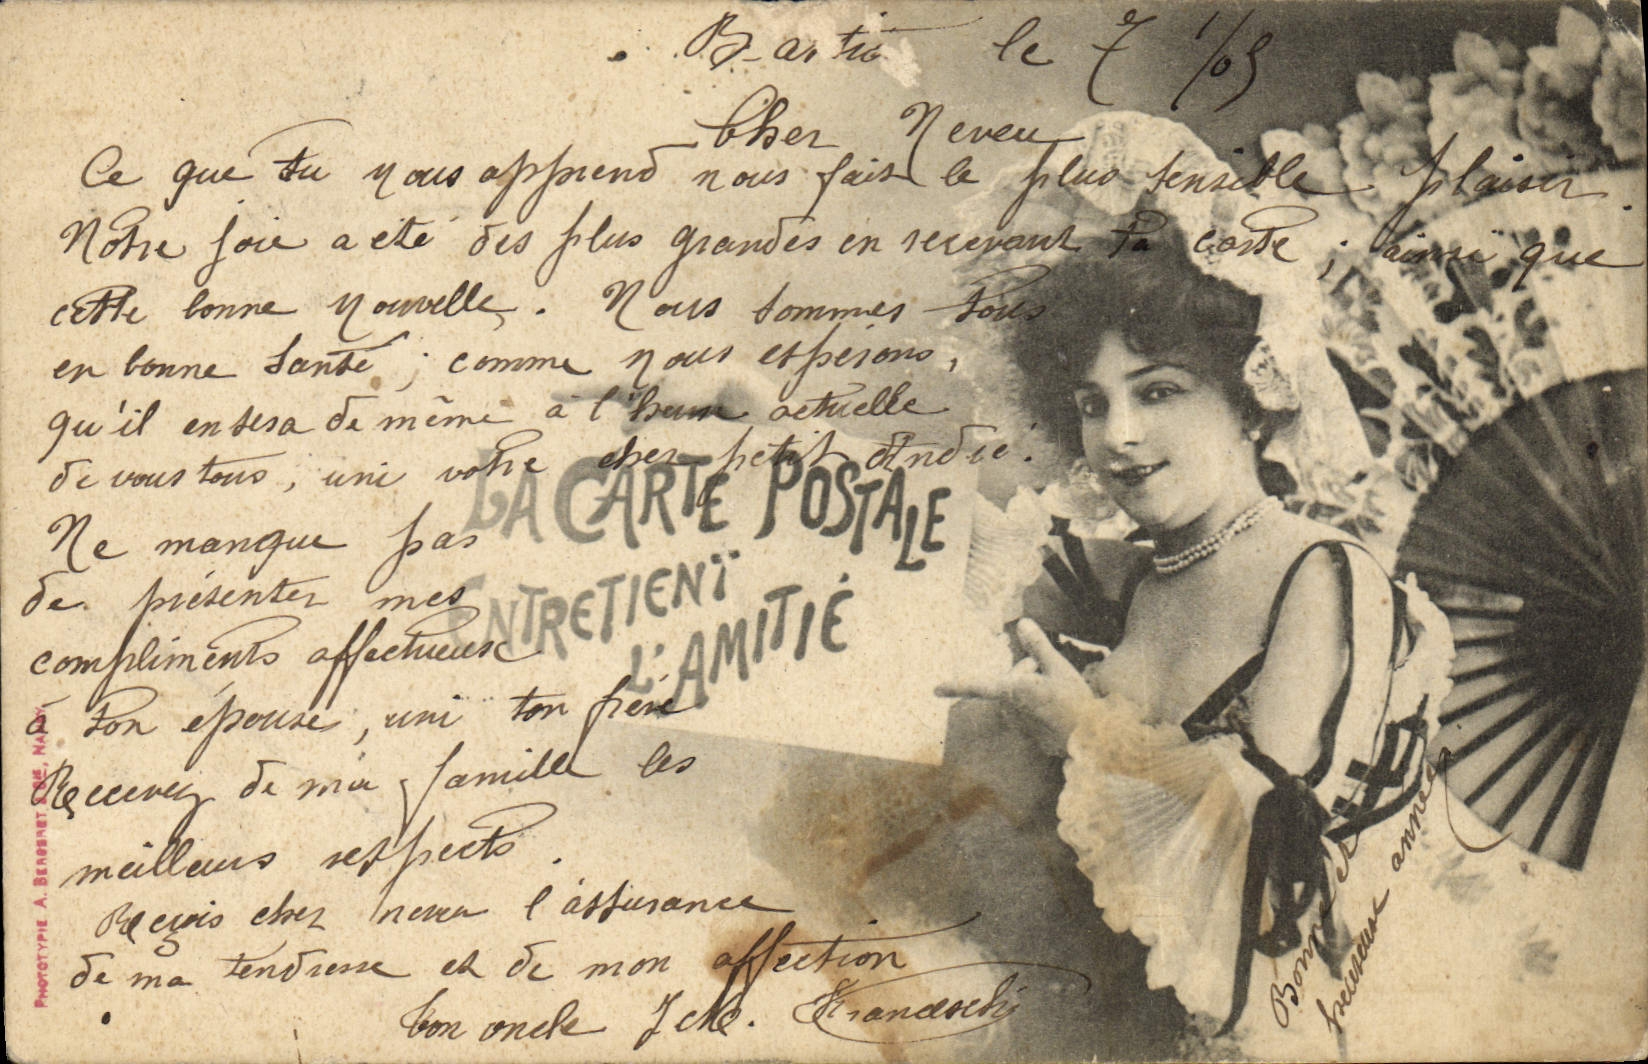 Bastia le 7 1/05
Cher Neveu
Ce que tu nous apprend nous fait le plus sensible plaisir.
Notre joie a été des plus grandes en recevant ta carte ; ainsi que
cette bonne nouvelle. Nous sommes tous
en bonne santé ; comme nous espérons,
qu'il en sera de même à l'heure actuelle
de vous tous, uni votre cher petit André.
Ne manque pas
de présenter mes
compliments affectueux
à ton épouse, uni ton frère
Recevez de ma famille les
meilleurs respects.
Reçois cher neveu l'assurance
de ma tendresse et de mon affection
Ton oncle Franceschi
Bonne et
heureuse année
LA CARTE POSTALE
ENTRETIENT
L'AMITIÉ
PHOTOTYPIE A. BERGERET & CIE, NANCY